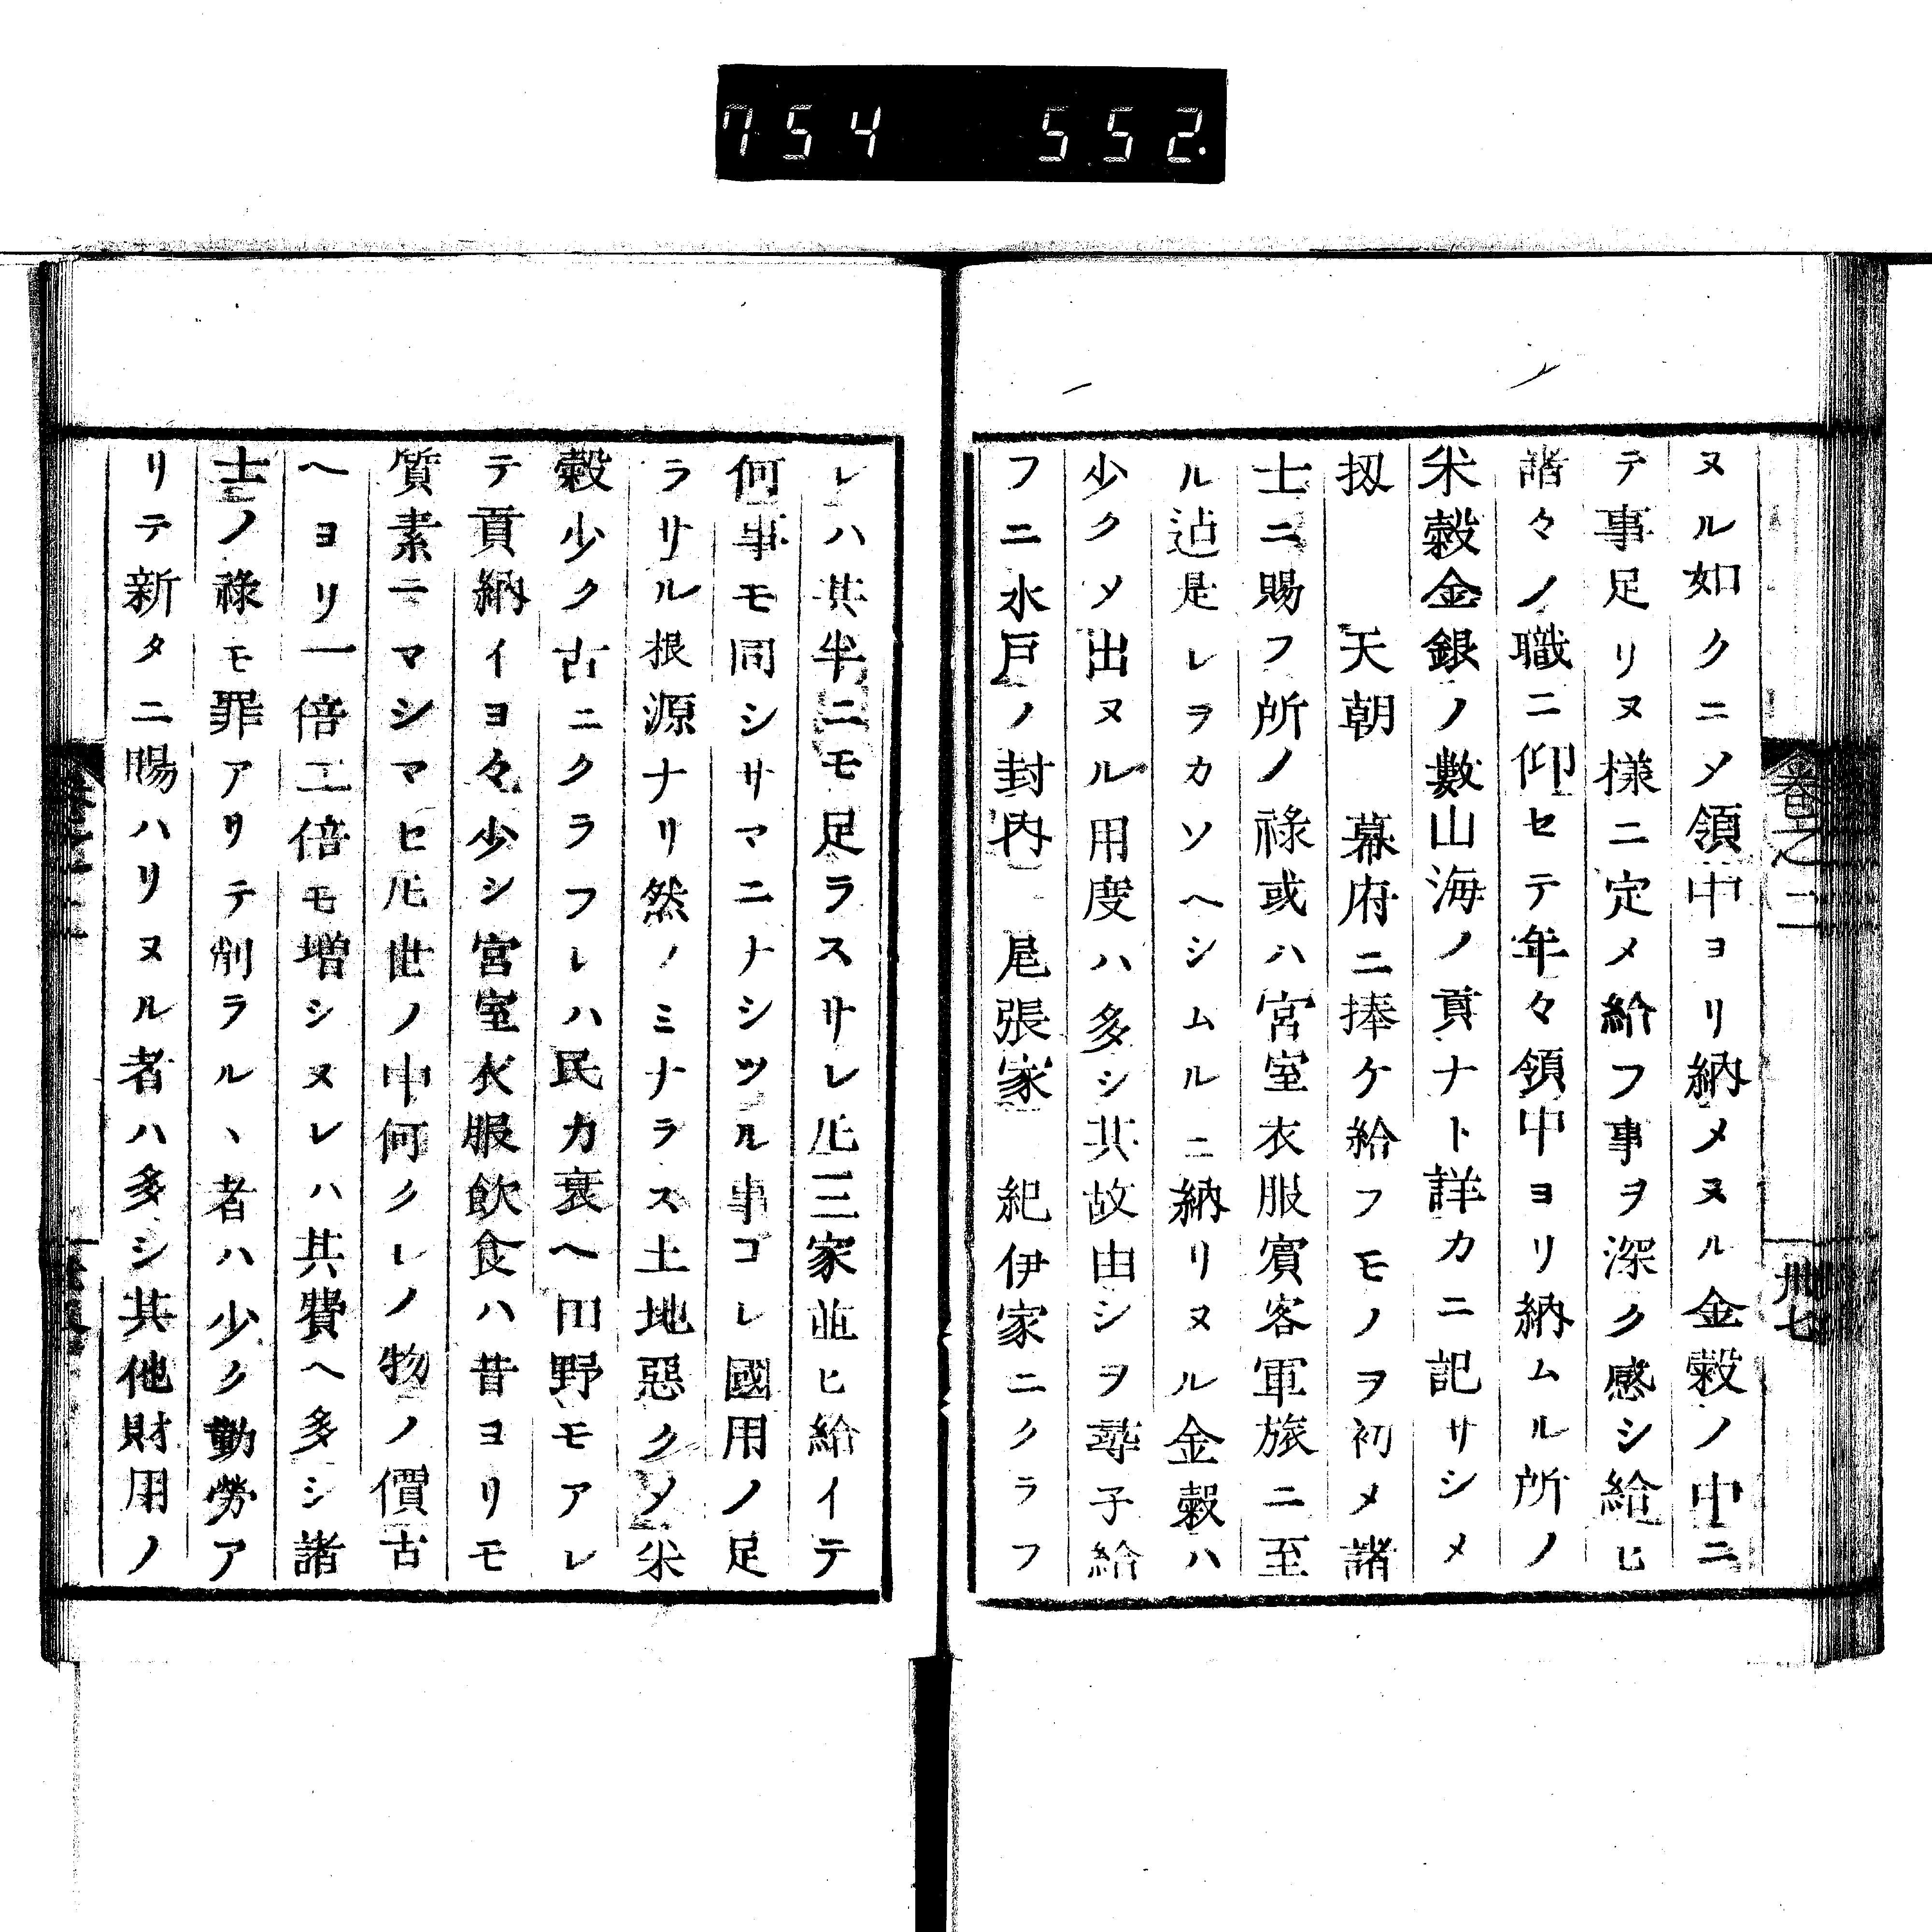 754 552.
卷之二
卅七
ヌル如クニメ領中ヨリ納メヌル金穀ノ中ニ
テ事足リヌ樣ニ定メ給フ事ヲ深ク感シ給ヒ
諸々ノ職ニ仰セテ年々領中ヨリ納ムル所ノ
米穀金銀ノ數山海ノ貢ナト詳カニ記サシメ
扨 天朝 幕府ニ捧ケ給フモノヲ初メ諸
士ニ賜フ所ノ祿或ハ宮室衣服賓客軍旅ニ至
ル迠是レヲカソヘシムルニ納リヌル金穀ハ
少クメ出ヌル用度ハ多シ其故由シヲ尋子給
フニ水戸ノ封内 尾張家 紀伊家ニクラフ
レハ其半ニモ足ラスサレ𪜈三家並ヒ給イテ
何事モ同シサマニナシツル事コレ國用ノ足
ラサル根源ナリ然ノミナラス土地惡クメ米
穀少ク古ニクラフレハ民カ衰ヘ田野モアレ
テ貢納イヨ々少シ宮室衣服飲食ハ昔ヨリモ
質素ニマシマセ𪜈世ノ中何クレノ物ノ價古
ヘヨリ一倍二倍モ増シヌレハ其費ヘ多シ諸
士ノ祿モ罪アリテ削ラルヽ者ハ少ク勤勞ア
リテ新タニ賜ハリヌル者ハ多シ其他財用ノ